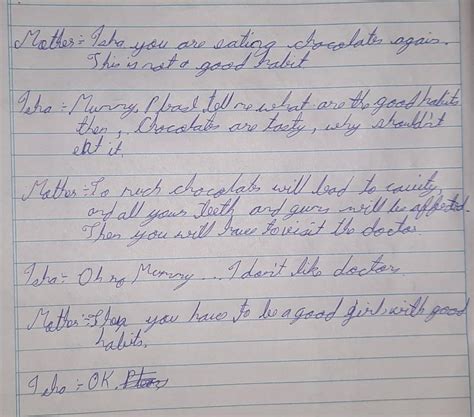 Mother:- Isha you are eating chocolates again.
This is not a good habit
Isha:- Mummy, Pleasl tell me what are the good habits
then, Chocolates are tasty, why shouldn't
eat it.
Mother:- To much chocolates will lead to cavity
and all your teeth and gums will be affected.
Then you will have to visit the doctor.
Isha:- Oh no, Mummy... I don't like doctor.
Mother:- Then you have to be a good girl with good
habits.
Isha:- OK.